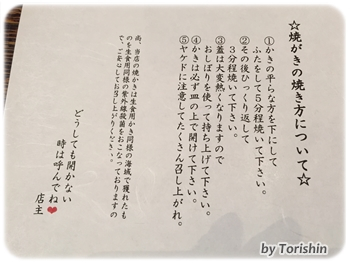 ☆焼がきの焼き方について☆
①かきの平らな方を下にして
ふたをして５分程焼いて下さい。
②その後ひっくり返して
３分程焼いて下さい。
③蓋は大変熱くなりますので
おしぼりを使って持ち上げて下さい。
④かきは必ず皿の上で開けて下さい。
⑤ヤケドに注意してたくさん召し上がれ。
尚、当店の焼かきは生食用かき同様の海域で獲れたも
のを生食用同様の紫外線殺菌をおこなっておりますの
で、ご安心してお召し上がりください。
どうしても開かない
時は呼んでね❤
店主
by Torishin